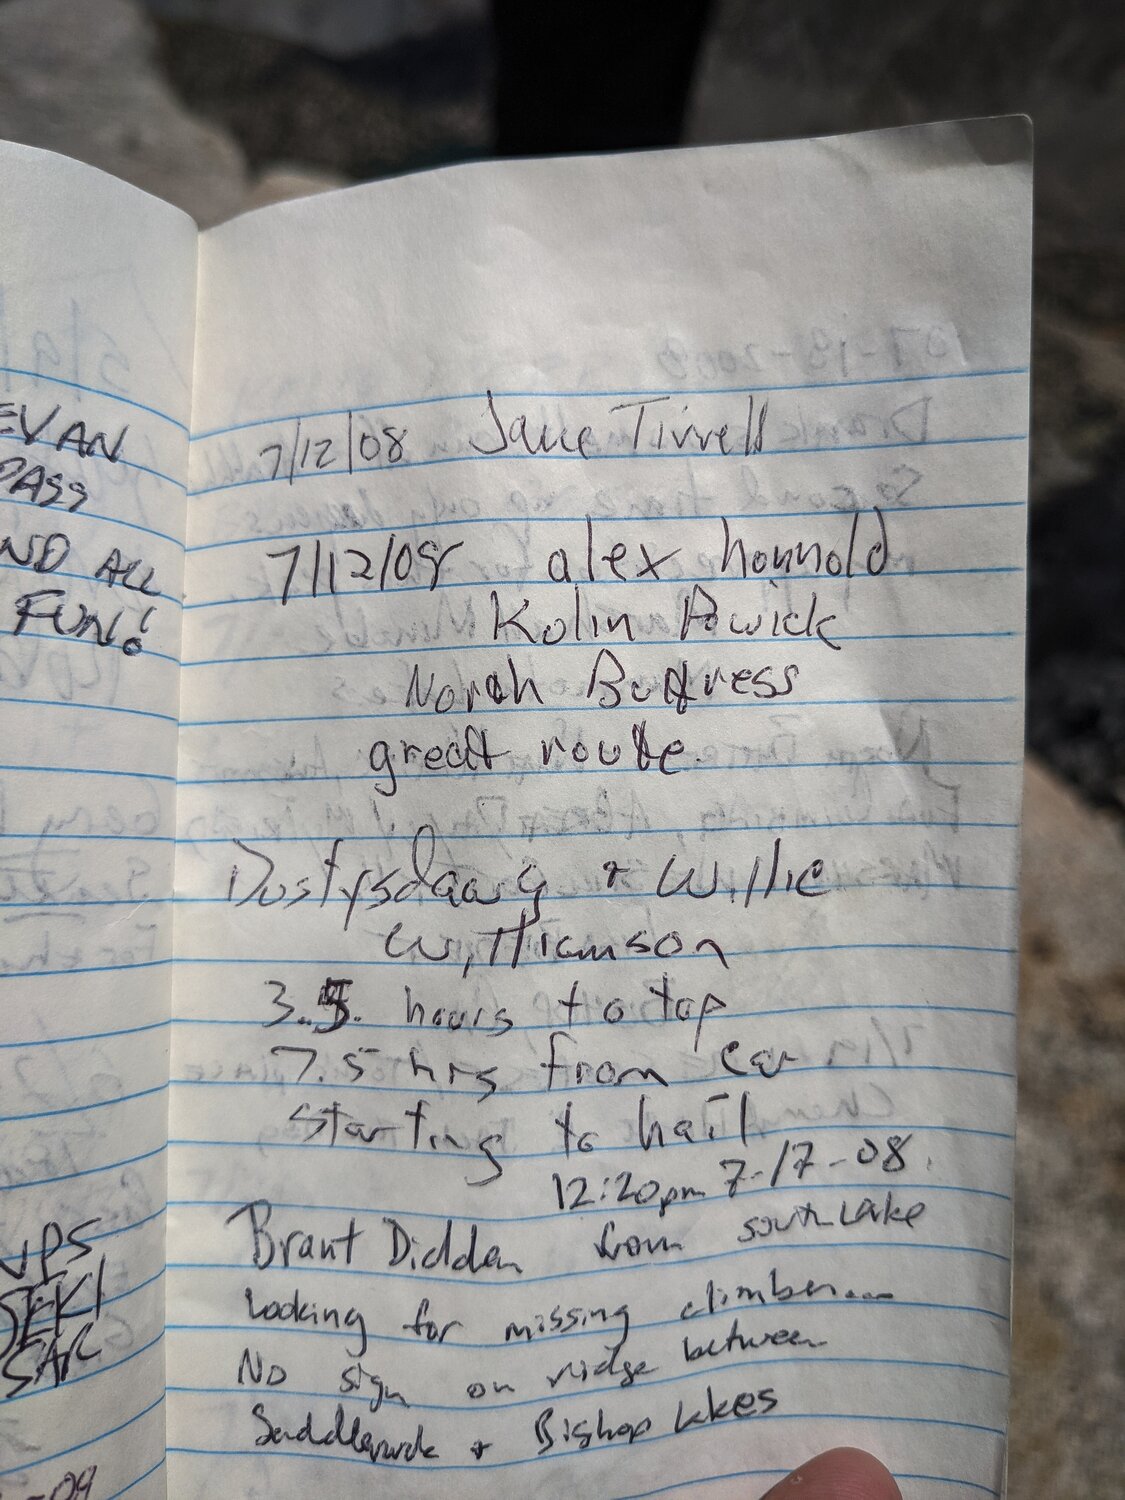 EVAN
PASS
ND ALL
FUN!
UPS
SEKI
SAR
-09
7/12/08 Jake Tirrell
7/12/08 alex honnold
Kolin Powick
North Buttress
great route.
+ Willie
Williamson
3.5. hours to top
7.5 hrs from car
starting to hail
12:20pm 7-17-08.
Brant Didden from south Lake
Looking for missing climber...
No sign on ridge between
+ Bishop Lakes
07-19-2009